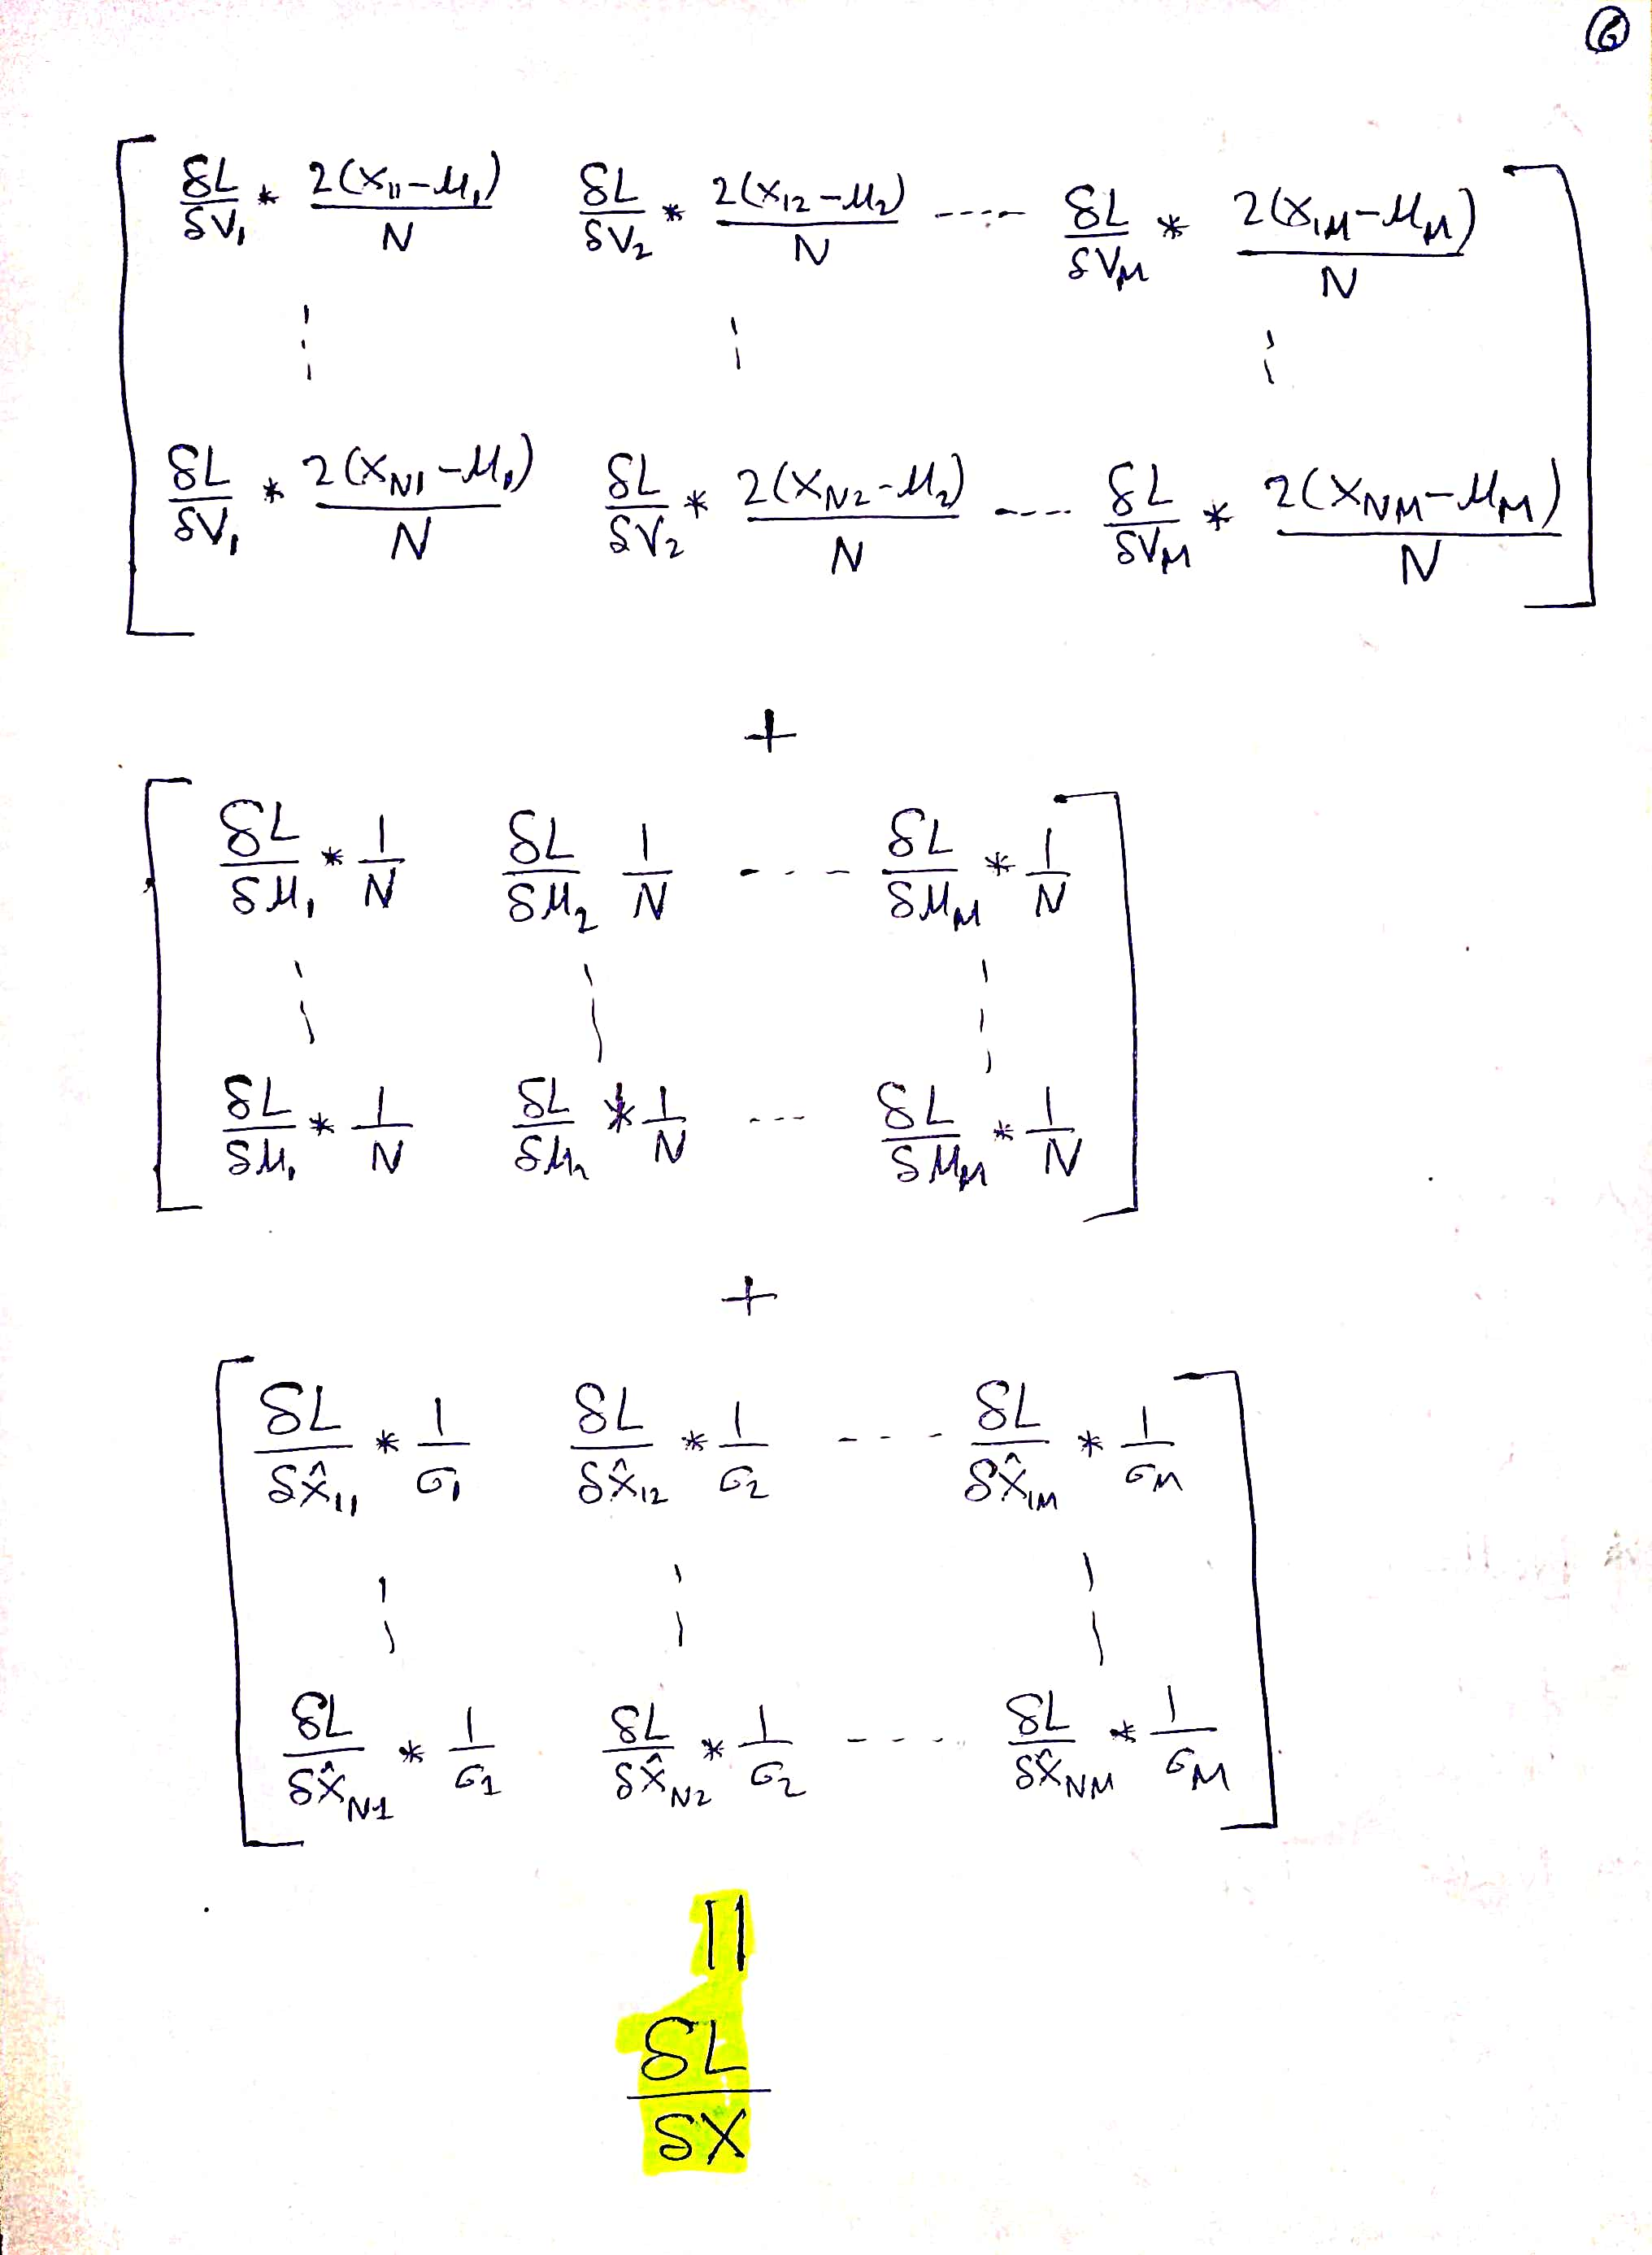 6
δL/δV₁ * 2(X₁₁-μ₁)/N δL/δV₂ * 2(X₁₂-μ₂)/N ---- δL/δV_M * 2(X₁M-μ_M)/N
δL/δV₁ * 2(X_N1-μ₁)/N δL/δV₂ * 2(X_N2-μ₂)/N ---- δL/δV_M * 2(X_NM-μ_M)/N
+
δL/δμ₁ * 1/N δL/δμ₂ 1/N ---- δL/δμ_M * 1/N
δL/δμ₁ * 1/N δL/δμ₂ * 1/N --- δL/δμ_M * 1/N
+
δL/δX̂₁₁ * 1/σ₁ δL/δX̂₁₂ * 1/σ₂ ---- δL/δX̂₁M * 1/σ_M
δL/δX̂_N1 * 1/σ₁ δL/δX̂_N2 * 1/σ₂ ---- δL/δX̂_NM * 1/σ_M
||
δL/δX